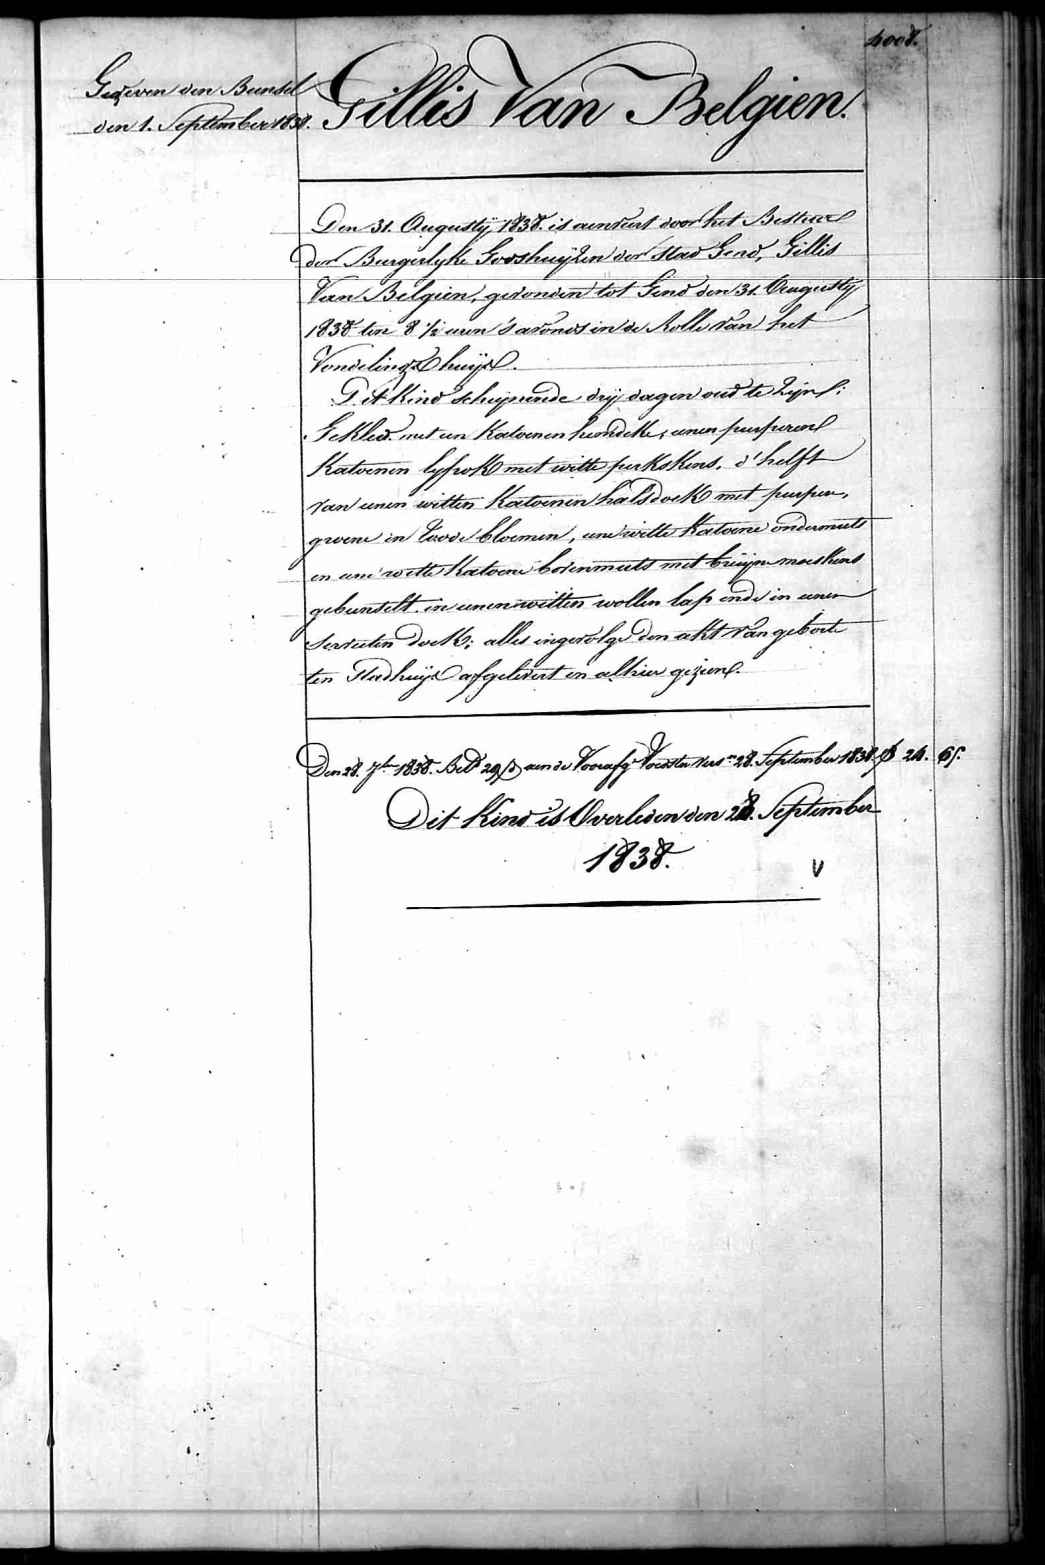 4008.
Gegeven den Bunsel
den 1. September 1838.
Gillis Van Belgien.
Den 31. Augustÿ 1838. is aenveert door het Bestier
der Burgerlyke Godshuÿzen der stad Gend, Gillis
Van Belgien, gevonden tot Gend den 31. Augustÿ
1838 ten 8 1/2 uren 's avonds in de Rolle van het
Vondelingshuÿs.
Dit kind schynende drÿ dagen oud te zyn:
Gekleed met een Katoenen hemdeke, eenen purperen
Katoenen lyfrok met witte perkskens, d'helft
van eenen witten Katoenen halsdoek met purper,
groene en roode bloemen, eene witte Katoene ondermuts
en eene witte Katoene bovenmuts met bruÿne moeskens
gebunselt in eenen witten wollen lap ende in eenen
servieten doek; alles ingevolge den akt van geboorte
ten Stadhuÿse afgelevert en alhier gezien.
Den 28. 7ber 1838. Betd 29 aen de Voorafg Voedster vers. 28. September 1838. 24. 65.
Dit Kind is Overleden den 28. September
1838.
V